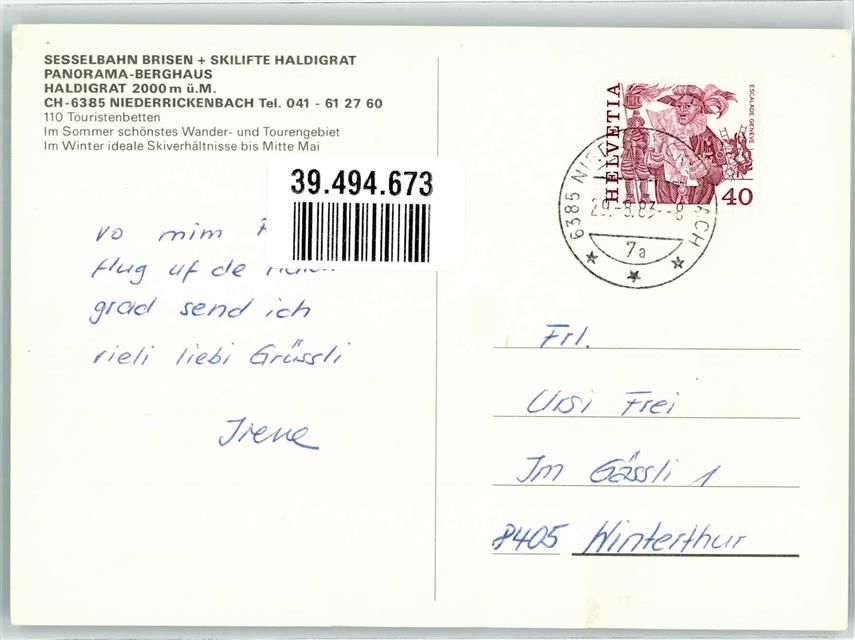 SESSELBAHN BRISEN + SKILIFTE HALDIGRAT
PANORAMA-BERGHAUS
HALDIGRAT 2000 m ü.M.
CH-6385 NIEDERRICKENBACH Tel. 041 - 61 27 60
110 Touristenbetten
Im Sommer schönstes Wander- und Tourengebiet
Im Winter ideale Skiverhältnisse bis Mitte Mai
39.494.673
vo mim
flug uf de
grad send ich
rieli liebi Grüssli
Irene
HELVETIA
ESCALADE GENÈVE
40
6385
7a
Frl.
Ursi Frei
Im Gässli 1
8405 Winterthur